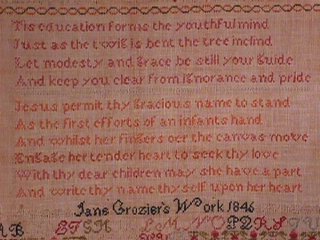 Tis education forms the youthful mind
Just as the twig is bent the tree inclind
Let modesty and Grace be still your Guide
And keep you clear from Ignorance and pride
Jesus permit thy Gracious name to stand
As the first efforts of an infants hand
And whilst her finGers oer the canvas move
EnGaGe her tender heart to seek thy love
With thy dear children may she have a part
And write thy name thyself upon her heart
Jane Grozier's Work 1846
AB